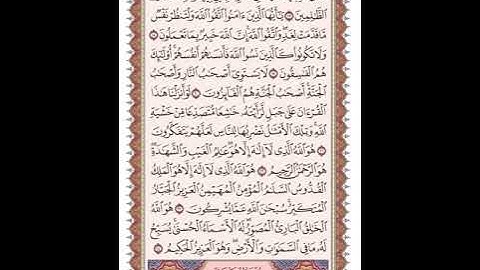 ٱلظَّٰلِمِينَ ۝١٧ يَٰٓأَيُّهَا ٱلَّذِينَ ءَامَنُوا۟ ٱتَّقُوا۟ ٱللَّهَ وَلْتَنظُرْ نَفْسٌ
مَّا قَدَّمَتْ لِغَدٍ ۖ وَٱتَّقُوا۟ ٱللَّهَ ۚ إِنَّ ٱللَّهَ خَبِيرٌۢ بِمَا تَعْمَلُونَ ۝١٨
وَلَا تَكُونُوا۟ كَٱلَّذِينَ نَسُوا۟ ٱللَّهَ فَأَنسَىٰهُمْ أَنفُسَهُمْ ۚ أُو۟لَٰٓئِكَ
هُمُ ٱلْفَٰسِقُونَ ۝١٩ لَا يَسْتَوِىٓ أَصْحَٰبُ ٱلنَّارِ وَأَصْحَٰبُ
ٱلْجَنَّةِ ۚ أَصْحَٰبُ ٱلْجَنَّةِ هُمُ ٱلْفَآئِزُونَ ۝٢٠ لَوْ أَنزَلْنَا هَٰذَا
ٱلْقُرْءَانَ عَلَىٰ جَبَلٍ لَّرَأَيْتَهُۥ خَٰشِعًا مُّتَصَدِّعًا مِّنْ خَشْيَةِ
ٱللَّهِ ۚ وَتِلْكَ ٱلْأَمْثَٰلُ نَضْرِبُهَا لِلنَّاسِ لَعَلَّهُمْ يَتَفَكَّرُونَ ۝٢١
هُوَ ٱللَّهُ ٱلَّذِى لَآ إِلَٰهَ إِلَّا هُوَ ۖ عَٰلِمُ ٱلْغَيْبِ وَٱلشَّهَٰدَةِ ۖ
هُوَ ٱلرَّحْمَٰنُ ٱلرَّحِيمُ ۝٢٢ هُوَ ٱللَّهُ ٱلَّذِى لَآ إِلَٰهَ إِلَّا هُوَ ٱلْمَلِكُ
ٱلْقُدُّوسُ ٱلسَّلَٰمُ ٱلْمُؤْمِنُ ٱلْمُهَيْمِنُ ٱلْعَزِيزُ ٱلْجَبَّارُ
ٱلْمُتَكَبِّرُ ۚ سُبْحَٰنَ ٱللَّهِ عَمَّا يُشْرِكُونَ ۝٢٣ هُوَ ٱللَّهُ
ٱلْخَٰلِقُ ٱلْبَارِئُ ٱلْمُصَوِّرُ ۖ لَهُ ٱلْأَسْمَآءُ ٱلْحُسْنَىٰ ۚ يُسَبِّحُ
لَهُۥ مَا فِى ٱلسَّمَٰوَٰتِ وَٱلْأَرْضِ ۖ وَهُوَ ٱلْعَزِيزُ ٱلْحَكِيمُ ۝٢٤